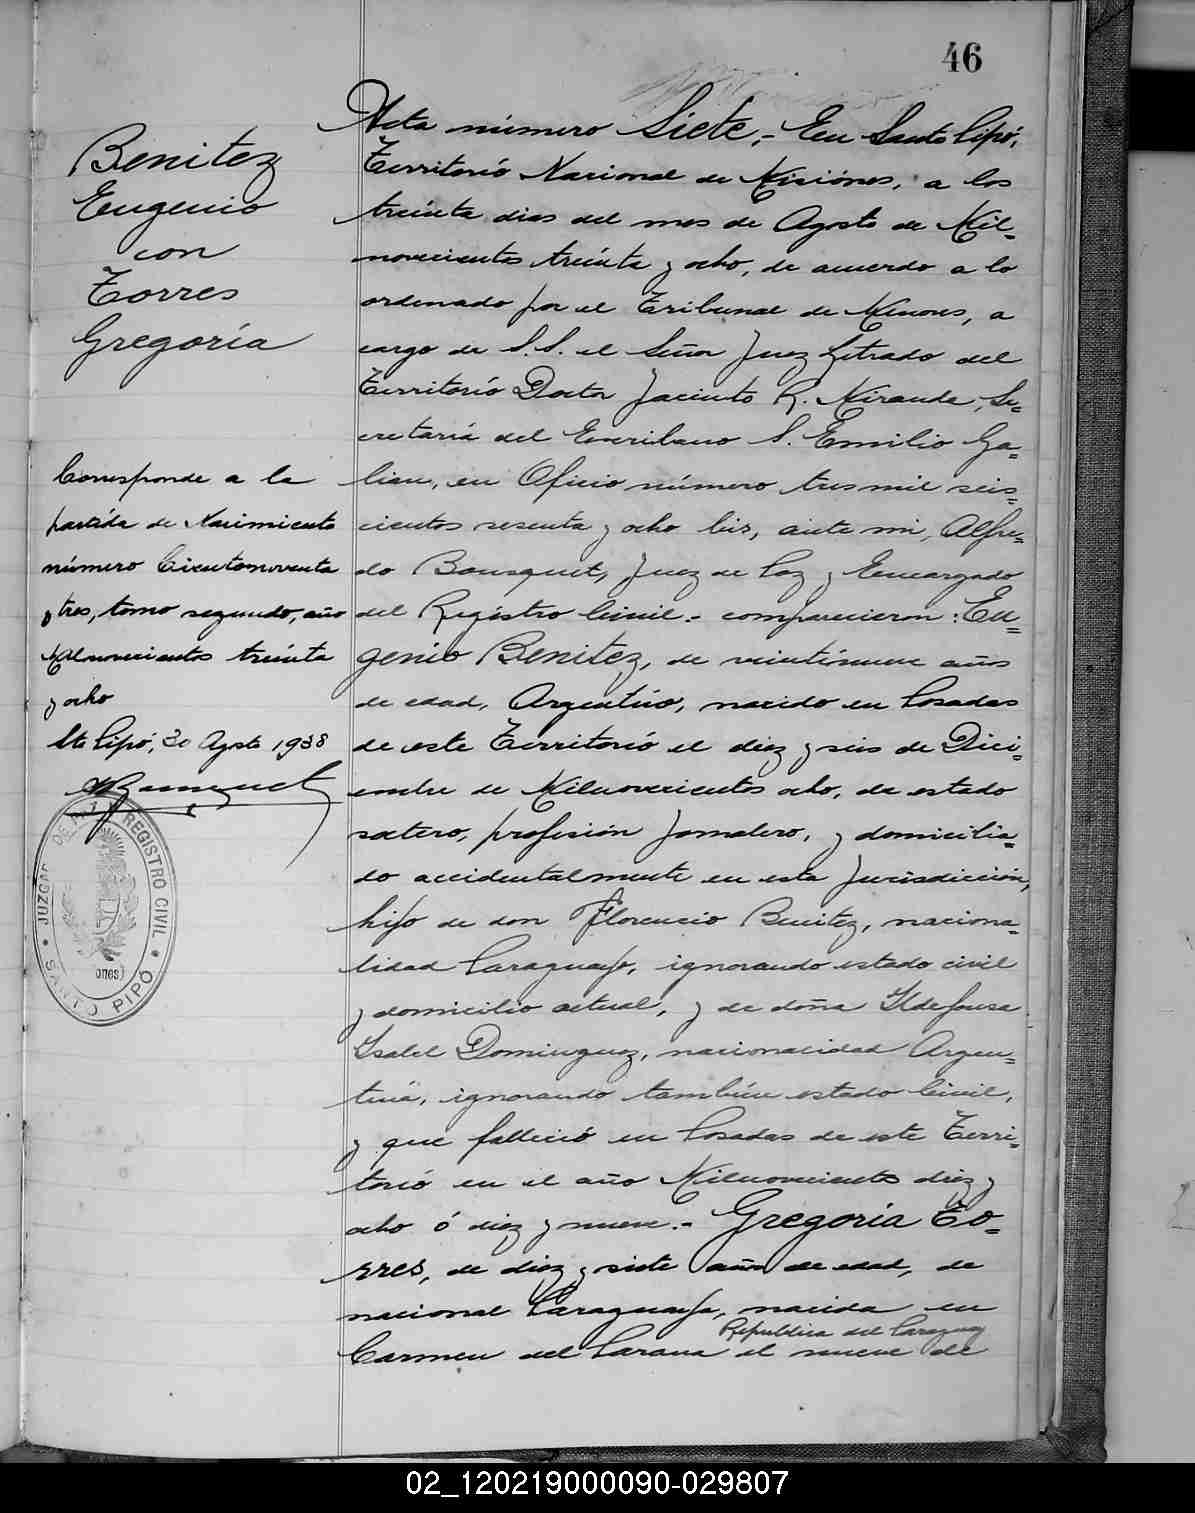 46
Benitez
Eugenio
con
Torres
Gregoria
Corresponde a la
partida de Nacimiento
número Cientonoventa
y tres, tomo segundo, año
Milnovecientos treinta
y ocho
Sto Pipó, 30 Agosto 1938
JUZGADO DE PAZ Y REGISTRO CIVIL
SANTO PIPÓ
ones)
Acta número Siete.- En Santo Pipó,
Territorio Nacional de Misiónes, a los
treinta dias del mes de Agosto de Mil=
novecientos treinta y ocho, de acuerdo a lo
ordenado por el Tribunal de Menores, a
cargo de S.S. el Señor Juez Letrado del
Territorio Doctor Jacinto R. Miranda, Se=
cretaria del Escribano S. Emilio Ga=
lian, en Oficio número tres mil seis=
cientos sesenta y ocho bis, ante mi, Alfre=
do Bousquet, Juez de Paz y Encargado
del Registro Civil.- comparecieron: Eu=
genio Benitez, de veintinueve años
de edad, Argentino, nacido en Posadas
de este Territorio el diez y seis de Dici=
embre de Milnovecientos ocho, de estado
soltero, profesión Jornalero, y domicilia=
do accidentalmente en esta Jurisdicción,
hijo de don Florencio Benitez, naciona=
lidad Paraguayo, ignorando estado civil
y domicilio actual, y de doña Ildefonsa
Isabel Dominguez, nacionalidad Argen=
tina, ignorando también estado Civil,
y que falleció en Posadas de este Terri=
torio en el año Milnovecientos diez y
ocho ó diez y nueve.- Gregoria To=
rres, de diez y siete años de edad, de
nacional Paraguaya, nacida en
Republica del Paraguay
Carmen del Parana el nueve de
02_120219000090-029807